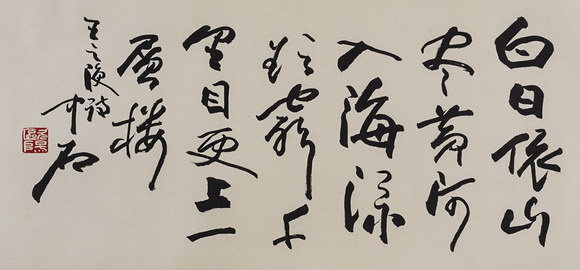 白日依山
尽黄河
入海流
欲窮千
里目更上一
層樓
王之涣詩
中石